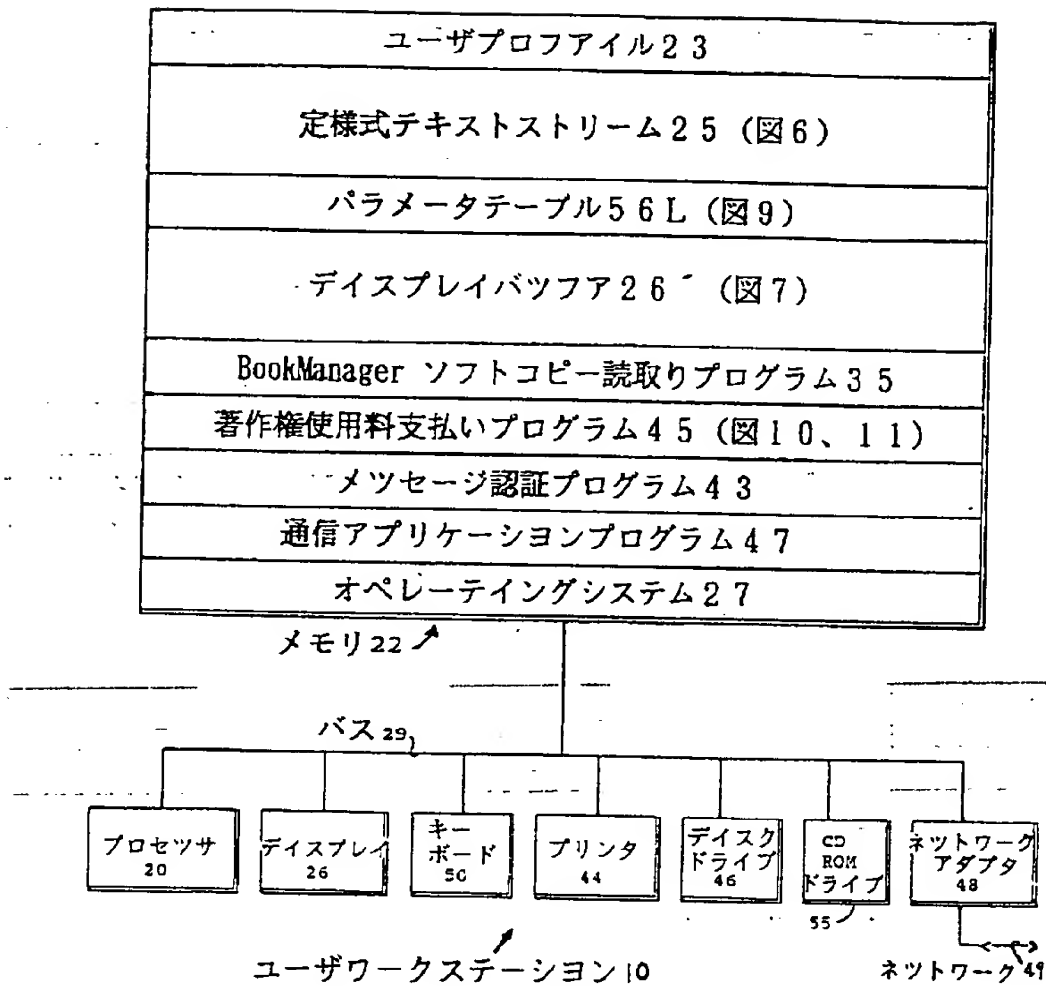 ユーザプロフアイル23
定様式テキストストリーム25 (図6)
パラメータテーブル56L (図9)
デイスプレイバツフア26 (図7)
BookManager ソフトコピー読取りプログラム35
著作権使用料支払いプログラム45 (図10、11)
メツセージ認証プログラム43
通信アプリケーシヨンプログラム47
オペレーテイングシステム27
メモリ22
バス29
プロセツサ
20
デイスプレイ
26
キー
ボード
50
プリンタ
44
デイスク
ドライブ
46
CD
ROM
ドライブ
55
ネツトワーク
アダプタ
48
ユーザワークステーシヨン10
ネツトワーク49